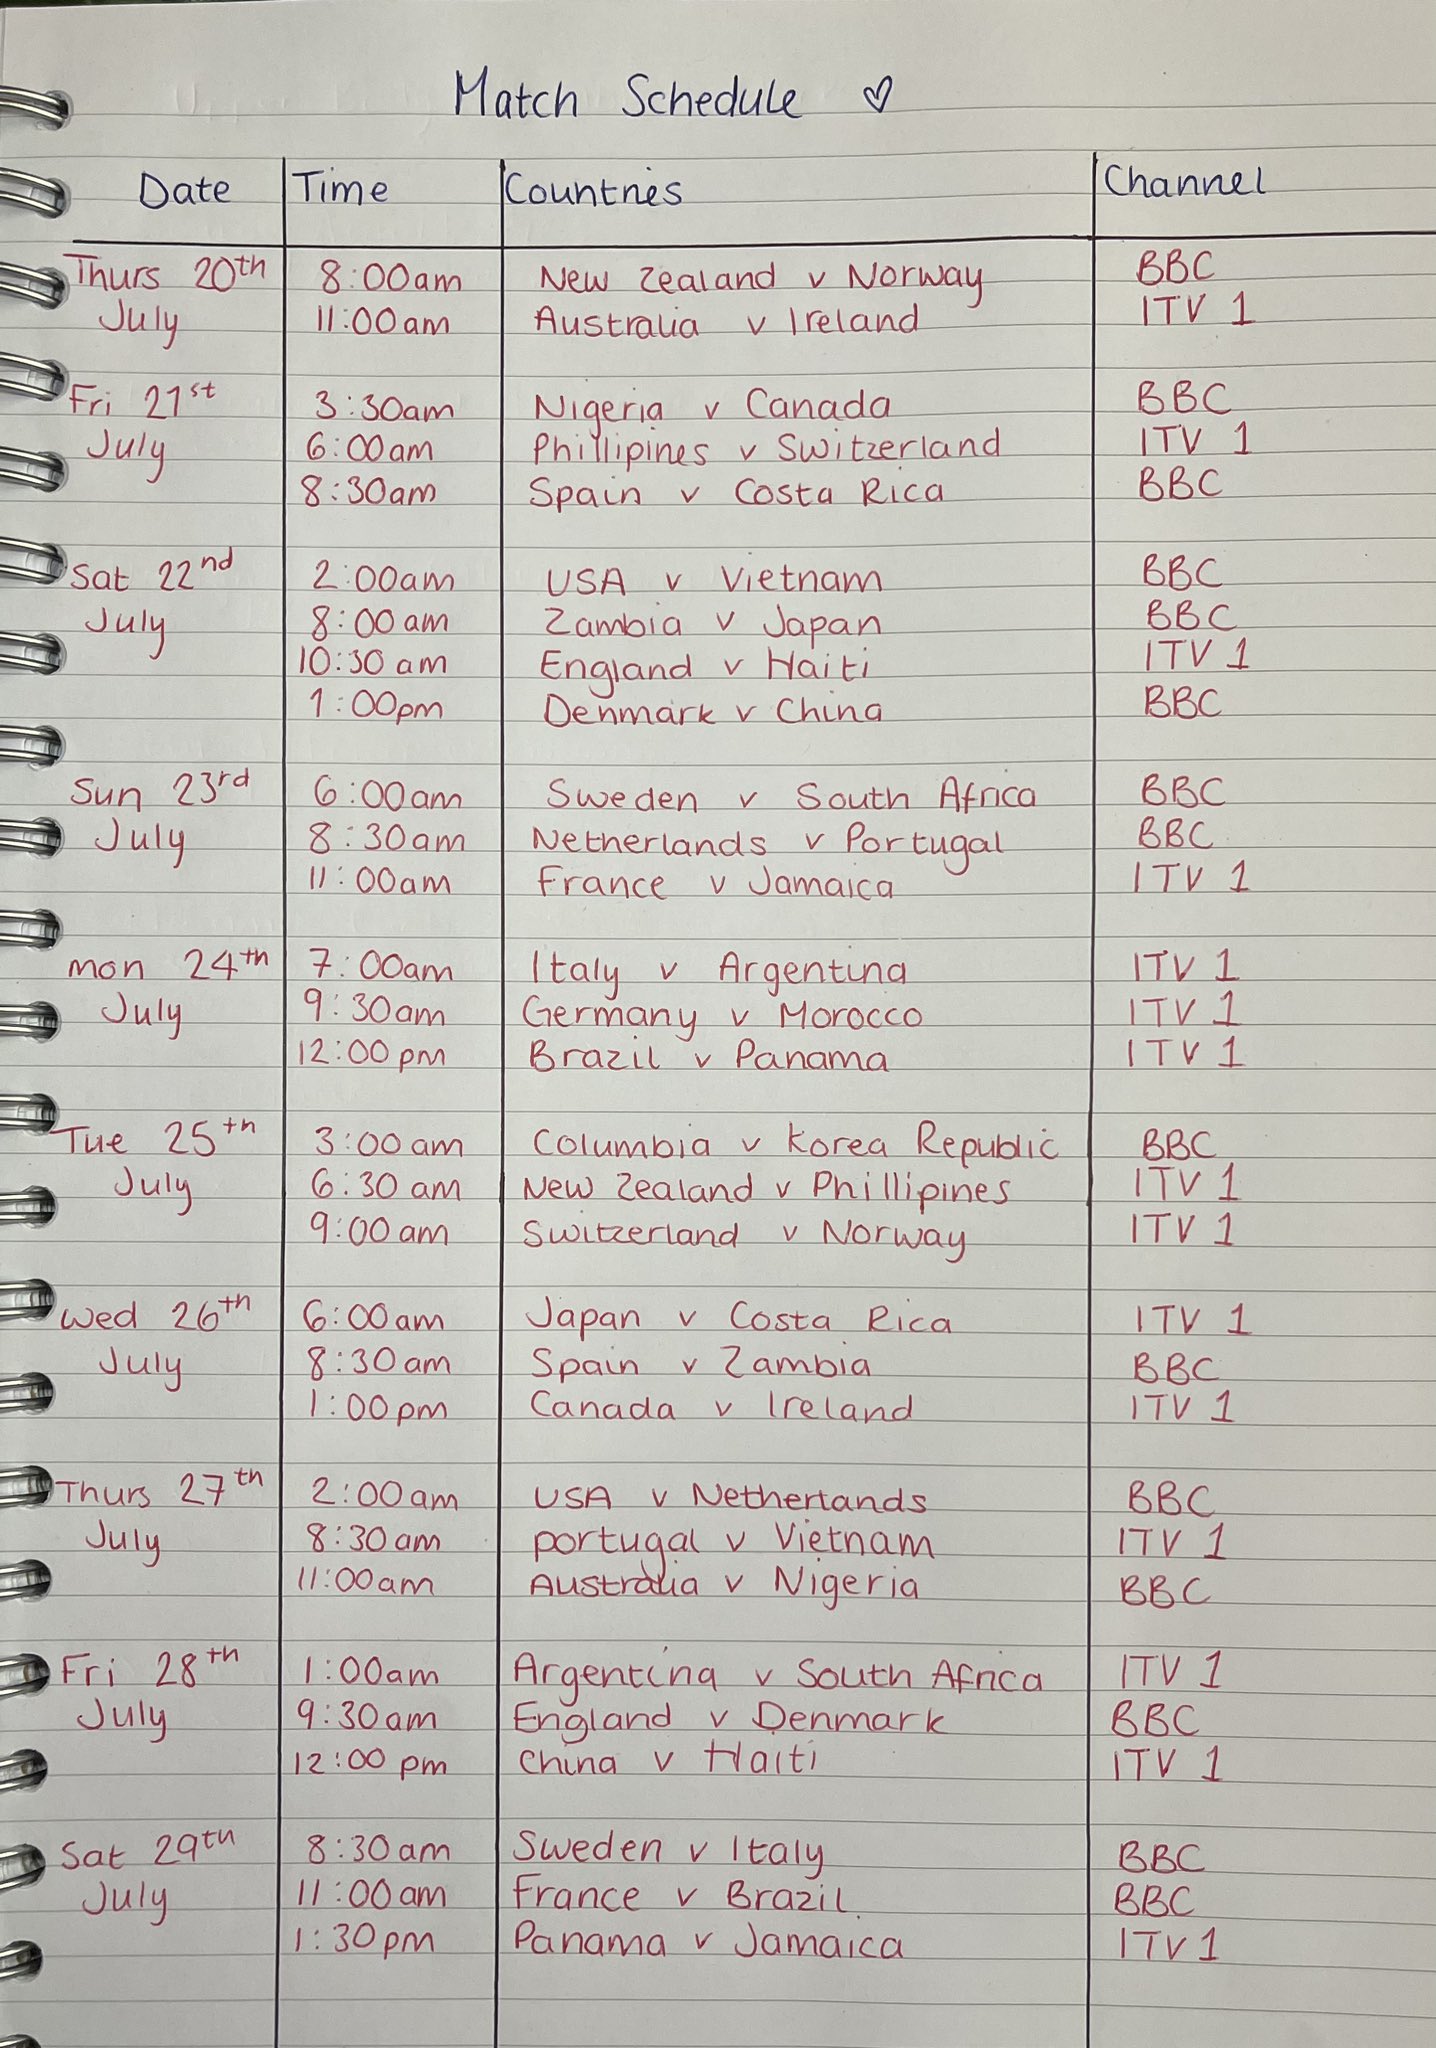 Match Schedule ♡
Date Time Countries Channel
Thurs 20th 8:00am New Zealand v Norway BBC
July 11:00am Australia v Ireland ITV 1
Fri 21st 3:30am Nigeria v Canada BBC
July 6:00am Phillipines v Switzerland ITV 1
8:30am Spain v Costa Rica BBC
Sat 22nd 2:00am USA v Vietnam BBC
July 8:00am Zambia v Japan BBC
10:30am England v Haiti ITV 1
1:00pm Denmark v China BBC
Sun 23rd 6:00am Sweden v South Africa BBC
July 8:30am Netherlands v Portugal BBC
11:00am France v Jamaica ITV 1
Mon 24th 7:00am Italy v Argentina ITV 1
July 9:30am Germany v Morocco ITV 1
12:00pm Brazil v Panama ITV 1
Tue 25th 3:00am Columbia v Korea Republic BBC
July 6:30am New Zealand v Phillipines ITV 1
9:00am Switzerland v Norway ITV 1
Wed 26th 6:00am Japan v Costa Rica ITV 1
July 8:30am Spain v Zambia BBC
1:00pm Canada v Ireland ITV 1
Thurs 27th 2:00am USA v Netherlands BBC
July 8:30am Portugal v Vietnam ITV 1
11:00am Australia v Nigeria BBC
Fri 28th 1:00am Argentina v South Africa ITV 1
July 9:30am England v Denmark BBC
12:00pm China v Haiti ITV 1
Sat 29th 8:30am Sweden v Italy BBC
July 11:00am France v Brazil BBC
1:30pm Panama v Jamaica ITV 1